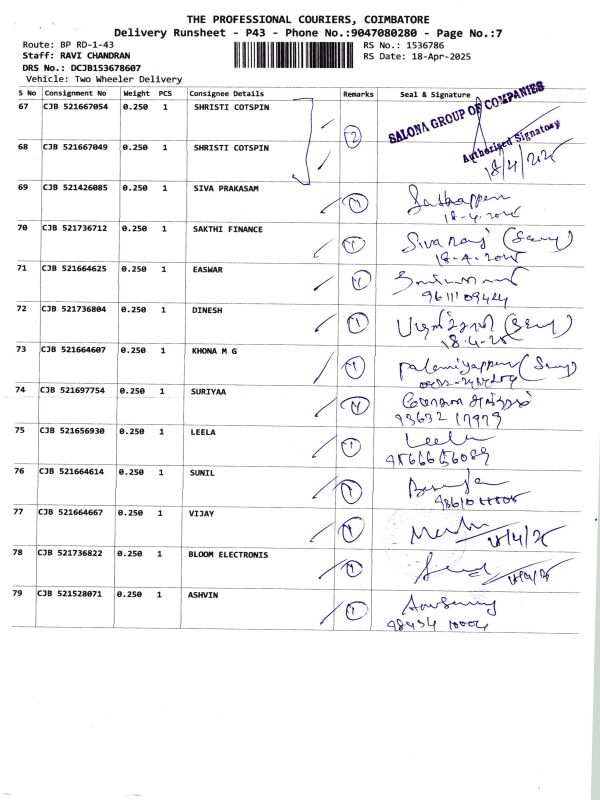 THE PROFESSIONAL COURIERS, COIMBATORE
Delivery Runsheet - P43 - Phone No.:9047080280 - Page No.:7
Route: BP RD-1-43 RS No.: 1536786
Staff: RAVI CHANDRAN RS Date: 18-Apr-2025
DRS No.: DCJB153678607
Vehicle: Two Wheeler Delivery
S No Consignment No Weight PCS Consignee Details Remarks Seal & Signature
67 CJB 521667054 0.250 1 SHRISTI COTSPIN 2 SALONA GROUP OF COMPANIES
Authorised Signatory
68 CJB 521667049 0.250 1 SHRISTI COTSPIN 18/4/2025
69 CJB 521426085 0.250 1 SIVA PRAKASAM 1
18-4-2025
70 CJB 521736712 0.250 1 SAKTHI FINANCE 1 Sivaraj
18-4-2025
71 CJB 521664625 0.250 1 EASWAR 1
72 CJB 521736804 0.250 1 DINESH 1
18-4-25
73 CJB 521664607 0.250 1 KHONA M G 1
74 CJB 521697754 0.250 1 SURIYAA 1
93632 17979
75 CJB 521656930 0.250 1 LEELA 1 Leela
76 CJB 521664614 0.250 1 SUNIL 1
77 CJB 521664667 0.250 1 VIJAY 1 18/4/25
78 CJB 521736822 0.250 1 BLOOM ELECTRONIS 1
79 CJB 521528071 0.250 1 ASHVIN 1
98434 10004